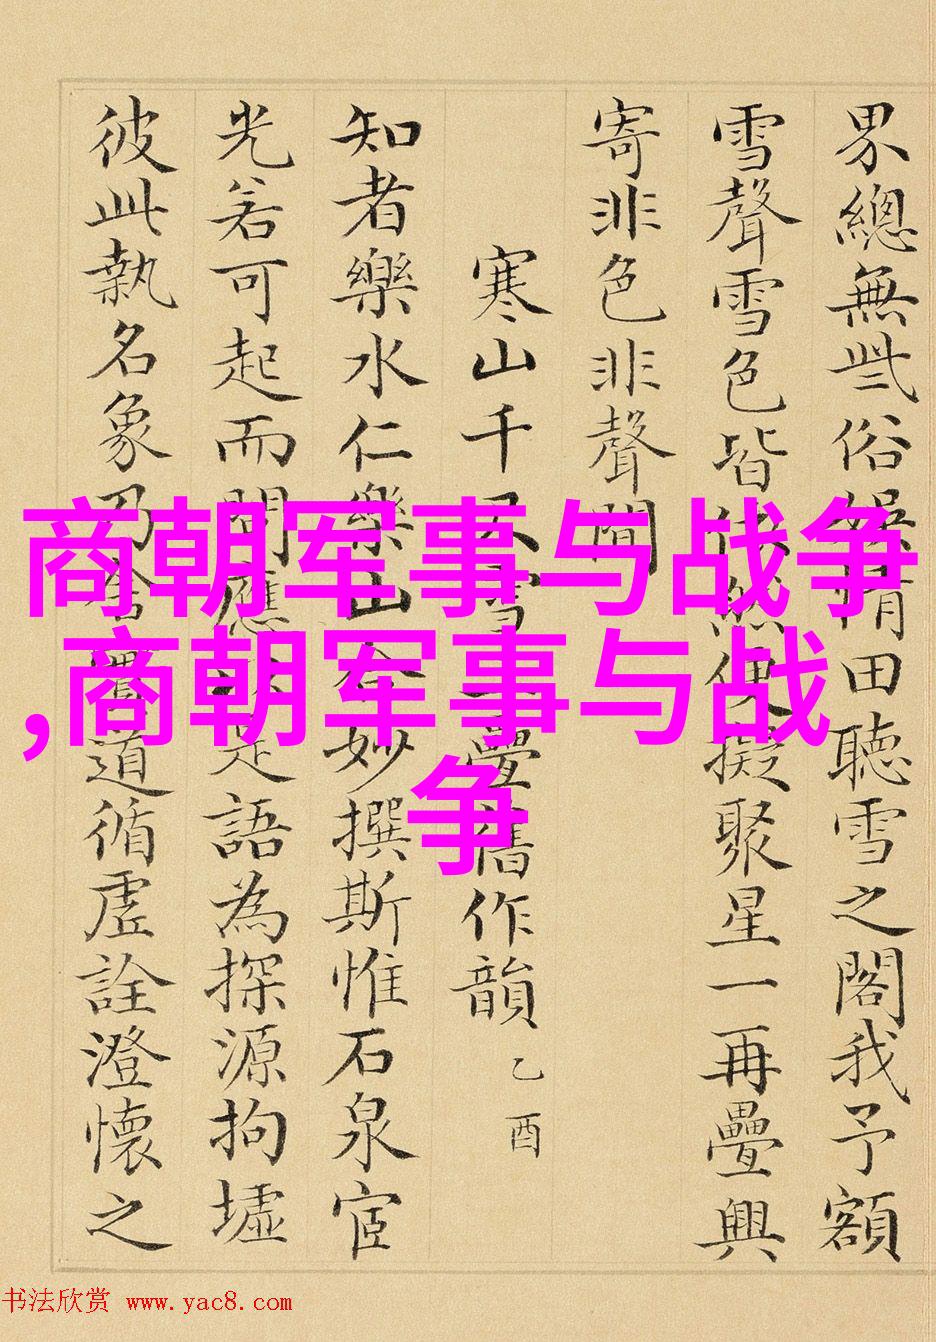 界總無些俗娱情田聽雪之閣我予額
雪聲雪色皆使擬聚星一再疊興
寄非色非聲間
寒山千尺雪疊舊作韻 乙酉
知者樂水仁樂山妙撰斯惟石泉宦
光若可起而問應是語為探源拘墟
彼此執名象道循虛詮澄懷之
商朝军事与战争
,商朝军事与战
争
书法欣赏 www.yac8.com